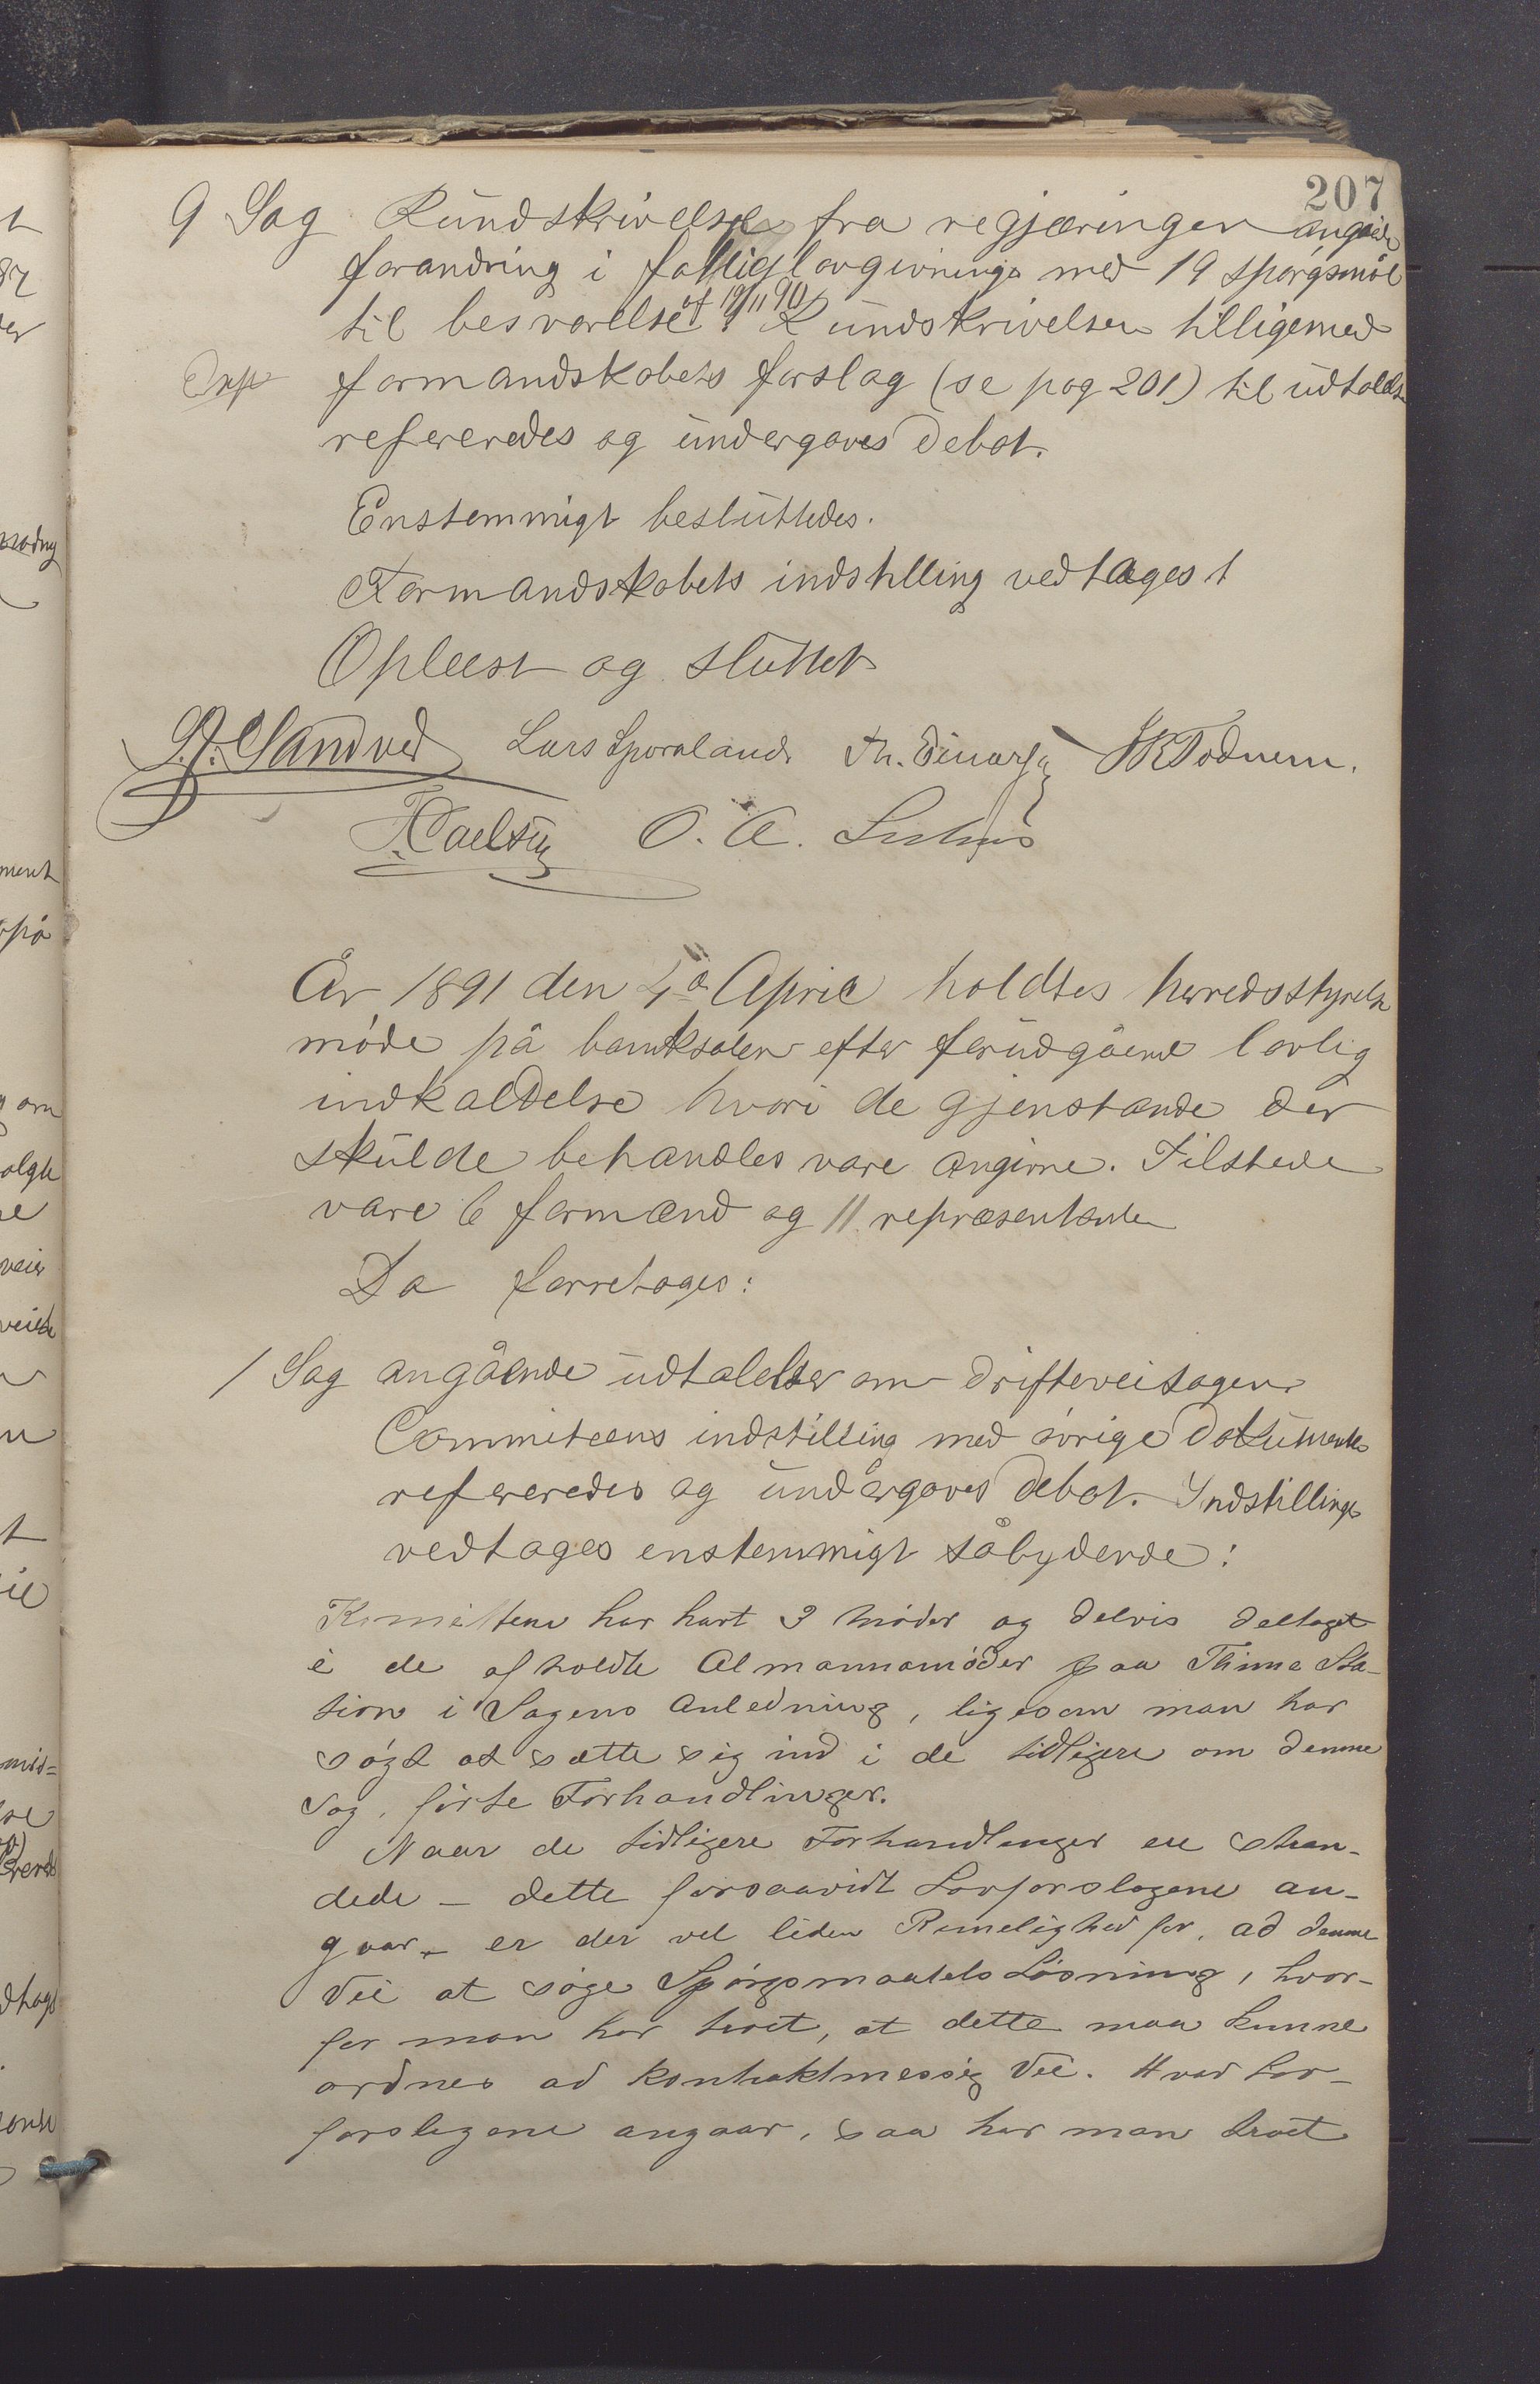 207
9 Sag Rundskrivelse fra regjæringen angående
forandring i fattiglovgivningen med 19 spørgsmål
til besvarelse af 19/11 90 Rundskrivelsen tilligemed
Exp formandskabets forslag (se pag 201) til udtalelse
refereredes og undergaves debat.
Enstemmigt besluttedes.
Formandskabets indstilling vedtages t
Oplæst og sluttet
Sandved Lars Sporaland Th. JB Todnem.
O. A.
År 1891 den 4de April holdtes herredsstyrelse
møde på banksalen efter forudgående lovlig
indkaldelse hvori de gjenstande der
skulde behandles vare angivne. Tilstede
vare 6 formænd og 11 repræsentanter
Da forretoges:
1 Sag angående udtalelser om drifteveisagen
Commiteens indstilling med øvrige dokumenter
refereredes og undergaves debat. Indstillingen
vedtages enstemmigt sålydende:
Komitteen har havt 3 Møder og delvis deltaget
i de afholdte Almannamøder paa Thime Sta-
tion i Sagens Anledning, ligesom man har
søgt at sætte sig ind i de tidligere om denne
Sag, førte Forhandlinger.
Naar de tidligere Forhandlinger ere stran-
dede – dette forsaavidt Lovforslagene an-
gaar – er der vel liden Rimelighed for, ad denne
Vei at søge Spørgsmaalets Løsning, hvor-
for man har troet, at dette maa kunne
ordnes ad kontraktmessig Vei. Hvad Lov-
forslagene angaar, saa har man troet